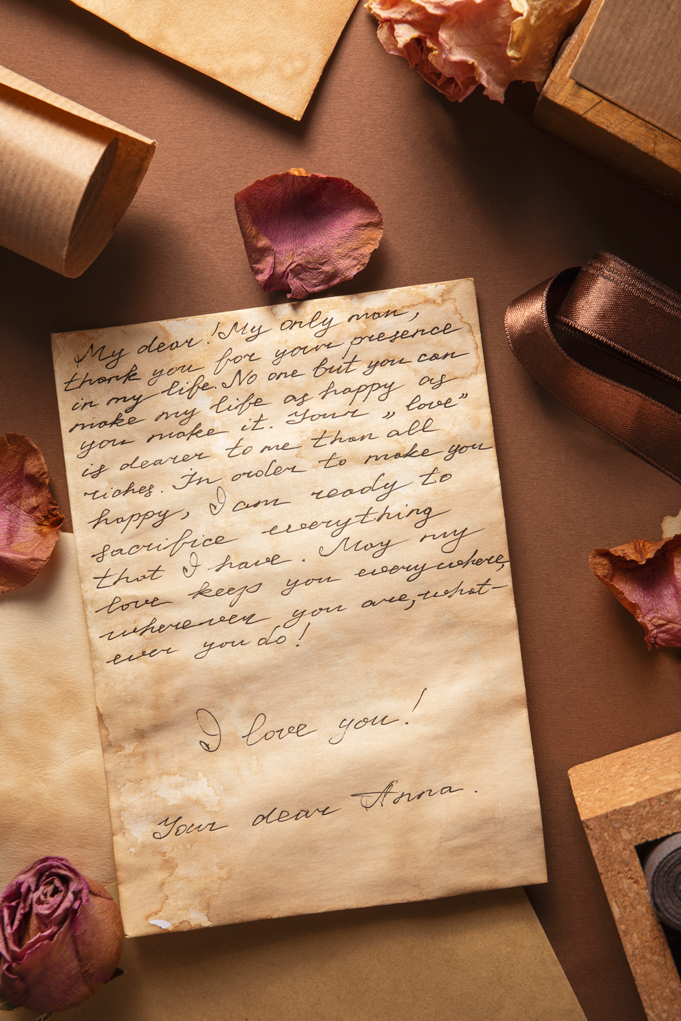 My dear! My only man,
thank you for your presence
in my life. No one but you can
make my life as happy as
you make it. Your „love”
is dearer to me than all
riches. In order to make you
happy, I am ready to
sacrifice everything
that I have. May my
love keeps you everywhere,
whereever you are, what-
ever you do!
I love you!
Your dear Anna.